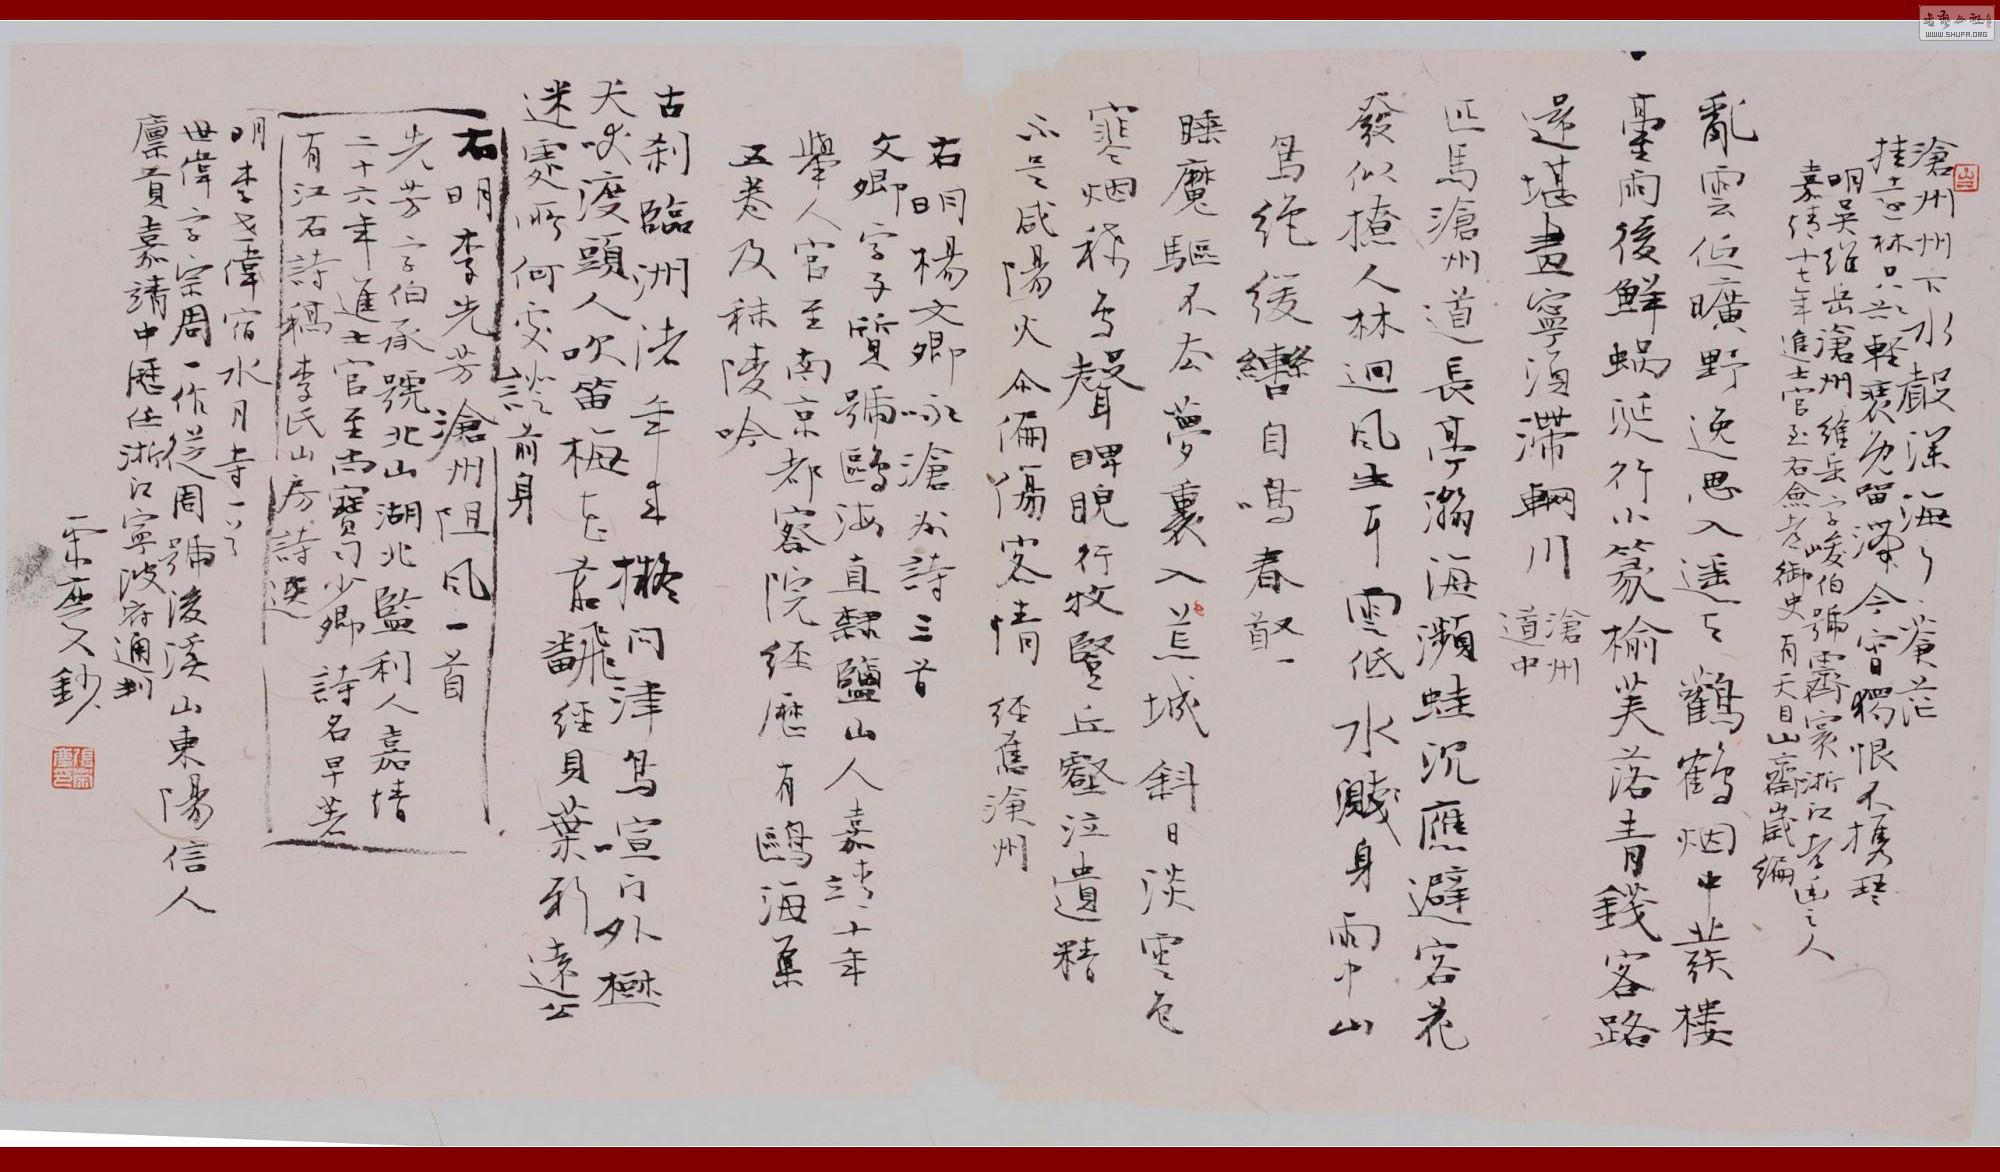 滄州州下水聲深海々蒼茫
挂壺林只共輕裘免留滯今宵獨恨不攜琴
明吳維岳滄州維岳字峻伯號霽寰浙江孝豐之人
嘉靖十七年進士官至右僉都御史有天目山齋歲編
亂雲低曠野逸思入遥天鸛鶴烟中蔟樓
臺雨後鮮蝸涎行小篆榆莢落青錢客路
還堪畫寧須滯輞川
滄州
道中
匹馬滄州道長亭溺海瀕蛙沉應避客花
發似撩人林迥風生耳雲低水濺身雨中山
鳥絶緩轡自鳴春
睡魔驅不去夢裏入荒城斜日淡雲色
寒烟移鳥聲睥睨行牧豎丘壑泣遺精
不是咸陽火余偏傷客情
經舊滄州
右明楊文卿詠滄州詩三首
文卿字子質號鷗海直隸鹽山人嘉靖二十年
舉人官至南京都察院經歷有鷗海集
五卷及秣陵吟
古刹臨洲渚年來擬問津鳥喧門外樾
犬吠渡頭人吹笛梅花落翻經貝葉新遠公
迷處所何處證前身
右明李先芳滄州阻風一首
先芳字伯承號北山湖北監利人嘉靖
二十六年進士官至尚寶司少卿詩名早著
有江右詩稿李氏山房詩選
明李世偉宿水月寺一首
世偉字宗周一作從周號浚溪山東陽信人
廩貢嘉靖中歷任浙江寧波府通判
書法公社
WWW.SHUFA.ORG